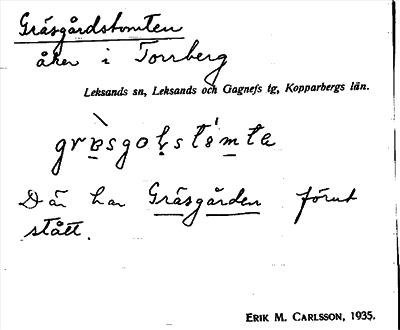 Gräsgårdstomten
åker i Torrberg
Leksands sn, Leksands och Gagnefs tg, Kopparbergs län.
Där har Gräsgården förut
stått.
ERIK M. CARLSSON, 1935.